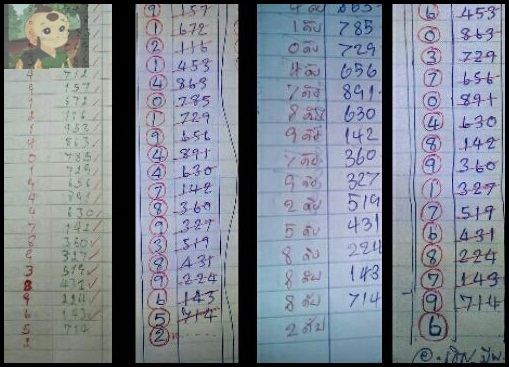 712
157
672
116
1 453
4 863
0 785
1 729
9 656
4 891
4 630
7 142
8 360
9 327
3 519
8 431
9 224
6 143
5 714
2
9 157
1 672
2 116
1 453
4 863
0 785
1 729
9 656
4 891
4 630
7 142
8 360
9 327
3 519
8 431
9 224
6 143
5 714
2
1 ดับ 785
0 ดับ 729
4 ดับ 656
7 ดับ 891
8 ดับ 630
9 ดับ 142
7 ดับ 360
9 ดับ 327
2 ดับ 519
5 ดับ 431
8 ดับ 224
8 ดับ 143
8 ดับ 714
2 ดับ
6 453
0 863
3 729
7 656
0 891
4 630
8 142
9 360
1 327
7 519
6 431
8 224
7 143
9 714
6